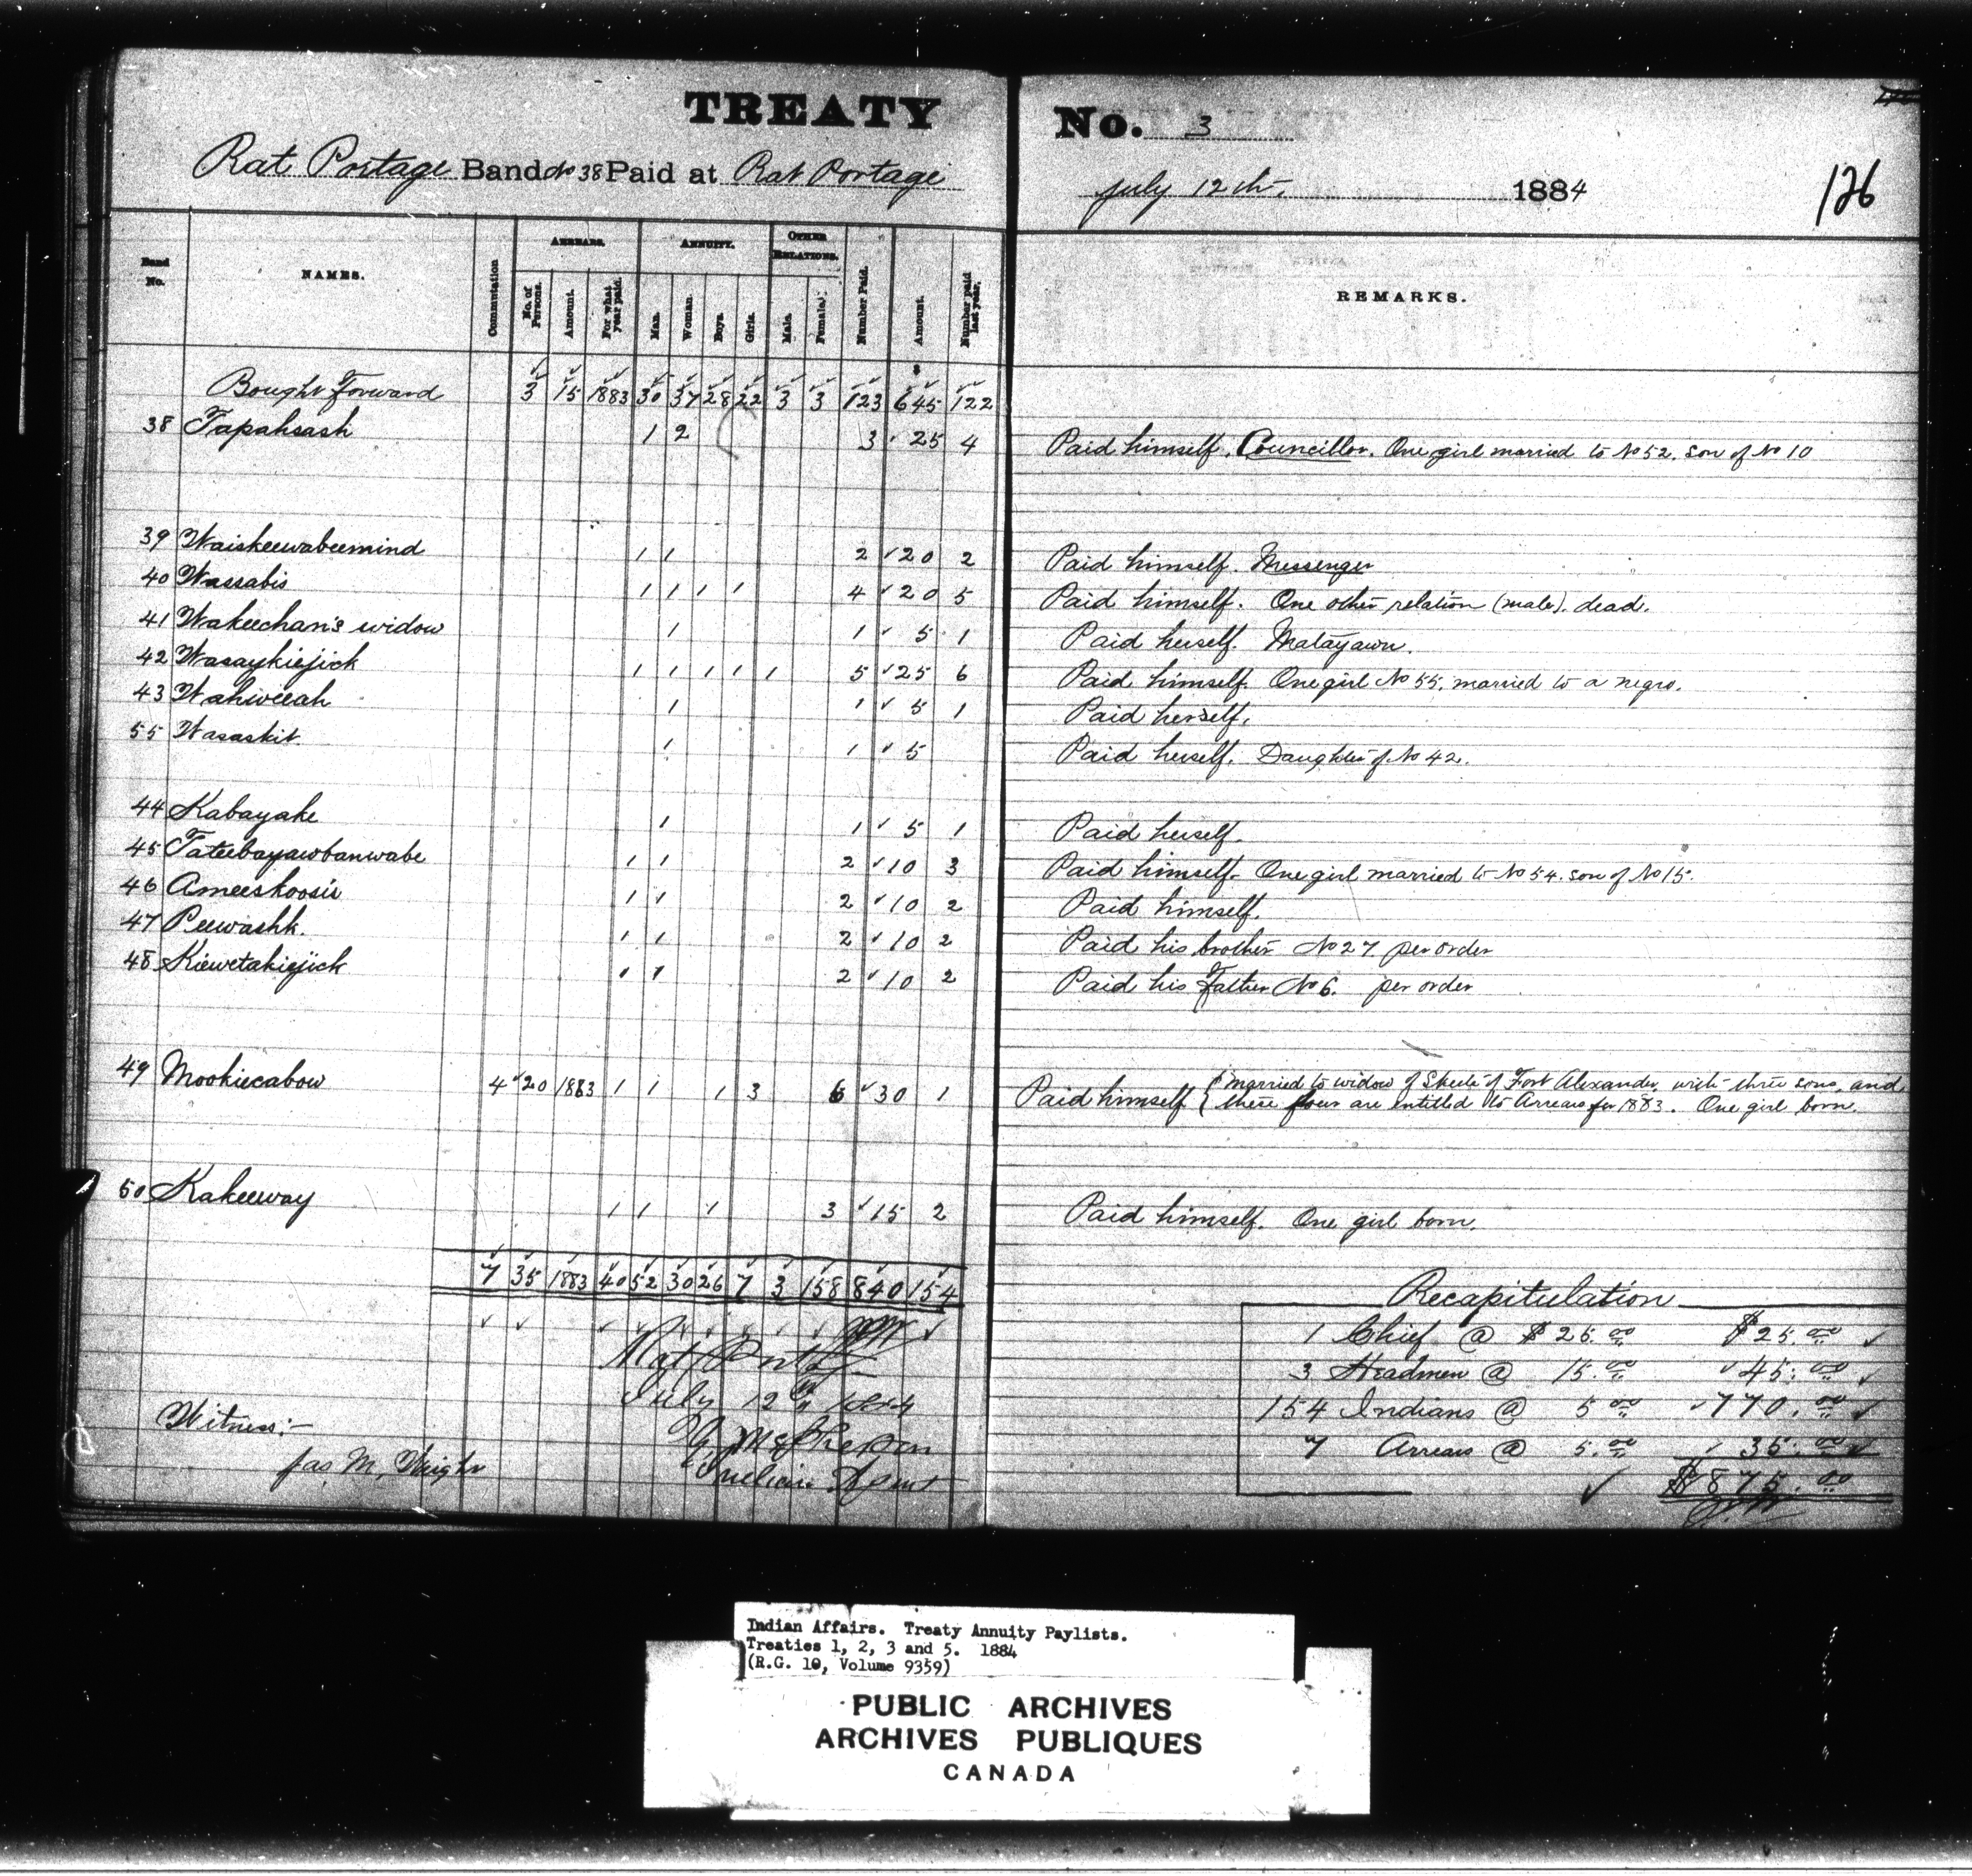 TREATY No. 3
Rat Portage Band No 38 Paid at Rat Portage July 12th, 1884
126
Band No. NAMES. Commutation ARREARS. No. of Persons. Amount. For what year paid. ANNUITY. Man. Woman. Boys. Girls. OTHER RELATIONS. Male. Female. Number Paid. Amount. Number paid last year. REMARKS.
Bought Forward 3 15 1883 30 37 28 22 3 3 123 645 122
38 Tapahsash 1 2 3 25 4 Paid himself. Councillor. One girl married to No 52. son of No 10
39 Waiskeewabeemind 1 1 2 20 2 Paid himself. Messenger
40 Wassabis 1 1 1 1 4 20 5 Paid himself. One other relation (male). dead.
41 Wakeechan's widow 1 1 5 1 Paid herself. Matayawn.
42 Wasaykiejick 1 1 1 1 1 5 25 6 Paid himself. One girl No 55. married to a negro.
43 Wahweeah 1 1 5 1 Paid herself.
55 Wasaskit. 1 1 5 Paid herself. Daughter of No 42.
44 Kabayahe 1 1 5 1 Paid herself.
45 Tateebayawbanwabe 1 1 2 10 3 Paid himself. One girl married to No 54. son of No 15.
46 Ameeskoosis 1 1 2 10 2 Paid himself.
47 Peewashk. 1 1 2 10 2 Paid his brother No 27 per order
48 Kiewetakiejick 1 1 2 10 2 Paid his Father No 6. per order
49 Mookiecabow 4 20 1883 1 1 1 3 6 30 1 Paid himself { married to widow of Skeete of Fort Alexander, with three sons, and
these four are entitled to Arrears for 1883. One girl born.
50 Kakeeway 1 1 1 3 15 2 Paid himself. One girl born.
7 35 1883 40 52 30 26 7 3 158 840 154
Recapitulation
1 Chief @ $25.00 $25.00
3 Headmen @ 15.00 45.00
154 Indians @ 5.00 770.00
7 Arrears @ 5.00 35.00
$875.00
Rat Portage
July 12th 1884
G. McPherson
Indian Agent
Witness:-
Jas. M. Wright
Indian Affairs. Treaty Annuity Paylists.
Treaties 1, 2, 3 and 5. 1884
(R.G. 10, Volume 9359)
PUBLIC ARCHIVES
ARCHIVES PUBLIQUES
CANADA